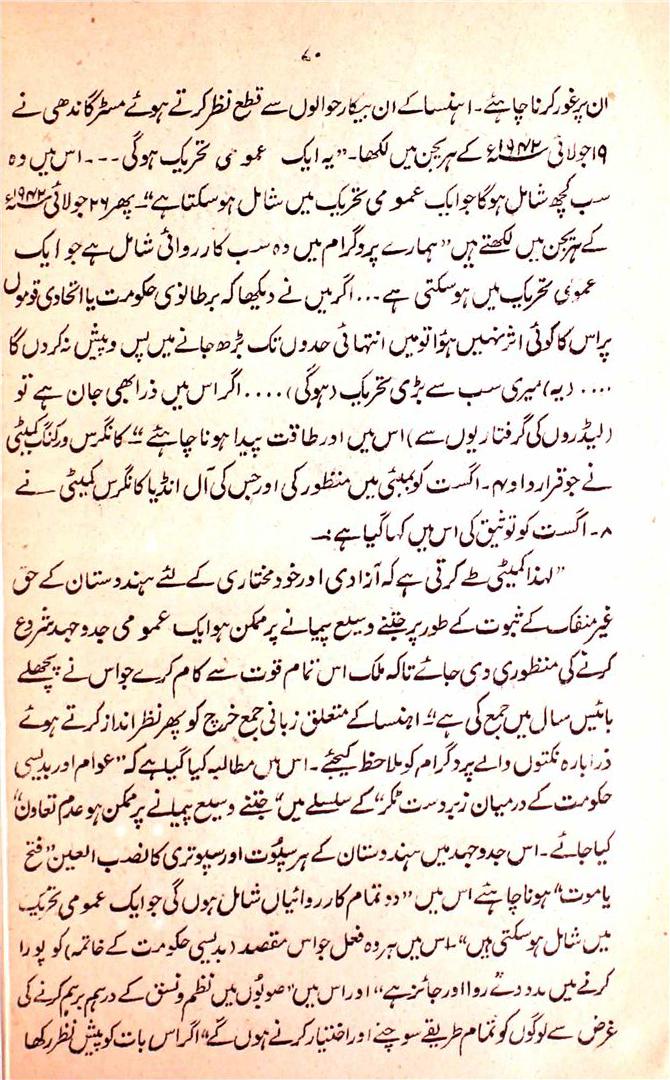 ۷۰
ان پر غور کرنا چاہئے۔ اہنسا کے ان بیکار حوالوں سے قطع نظر کرتے ہوئے مسٹر گاندھی نے
۱۹ جولائی ۱۹۴۲ء کے ہریجن میں لکھا۔ "یہ ایک عمومی تحریک ہوگی ۔۔۔ اس میں وہ
سب کچھ شامل ہوگا جو ایک عمومی تحریک میں شامل ہو سکتا ہے"۔ پھر ۲۶ جولائی ۱۹۴۲ء
کے ہریجن میں لکھتے ہیں "ہمارے پروگرام میں وہ سب کارروائی شامل ہے جو ایک
عمومی تحریک میں ہو سکتی ہے ... اگر میں نے دیکھا کہ برطانوی حکومت یا اتحادی قوموں
پر اس کا کوئی اثر نہیں ہؤا تو میں انتہائی حدوں تک بڑھ جانے میں پس و پیش نہ کروں گا
.... (یہ) میری سب سے بڑی تحریک (ہوگی) .... اگر اس میں ذرا بھی جان ہے تو
(لیڈروں کی گرفتاریوں سے) اس میں اور طاقت پیدا ہونا چاہئے"۔ کانگرس ورکنگ کمیٹی
نے جو قرارداد ۴۔ اگست کو بمبئی میں منظور کی اور جس کی آل انڈیا کانگرس کمیٹی نے
۸۔ اگست کو توثیق کی اس میں کہا گیا ہے:۔
"لہذا کمیٹی طے کرتی ہے کہ آزادی اور خود مختاری کے لئے ہندوستان کے حق
غیر منفک کے ثبوت کے طور پر جتنے وسیع پیمانے پر ممکن ہو ایک عمومی جدوجہد شروع
کرنے کی منظوری دی جائے تاکہ ملک اس تمام قوت سے کام کرے جو اس نے پچھلے
بائیس سال میں جمع کی ہے"۔ اہنسا کے متعلق زبانی جمع خرچ کو پھر نظر انداز کرتے ہوئے
ذرا بارہ نکتوں والے پروگرام کو ملاحظہ کیجئے۔ اس میں مطالبہ کیا گیا ہے کہ "عوام اور بدیسی
حکومت کے درمیان زبردست ٹکر" کے سلسلے میں "جتنے وسیع پیمانے پر ممکن ہو عدم تعاون"
کیا جائے۔ اس جدوجہد میں ہندوستان کے ہر سپوت اور سپوتری کا نصب العین "فتح
یا موت" ہونا چاہئے اس میں "وہ تمام کارروائیاں شامل ہوں گی جو ایک عمومی تحریک
میں شامل ہو سکتی ہیں"۔ اس میں ہر وہ فعل جو اس مقصد (بدیسی حکومت کے خاتمہ) کو پورا
کرنے میں مدد دے روا اور جائز ہے" اور اس میں "صوبوں میں نظم و نسق کے درہم برہم کرنے کی
غرض سے لوگوں کو تمام طریقے سوچنے اور اختیار کرنے ہوں گے" اگر اس بات کو پیش نظر رکھا